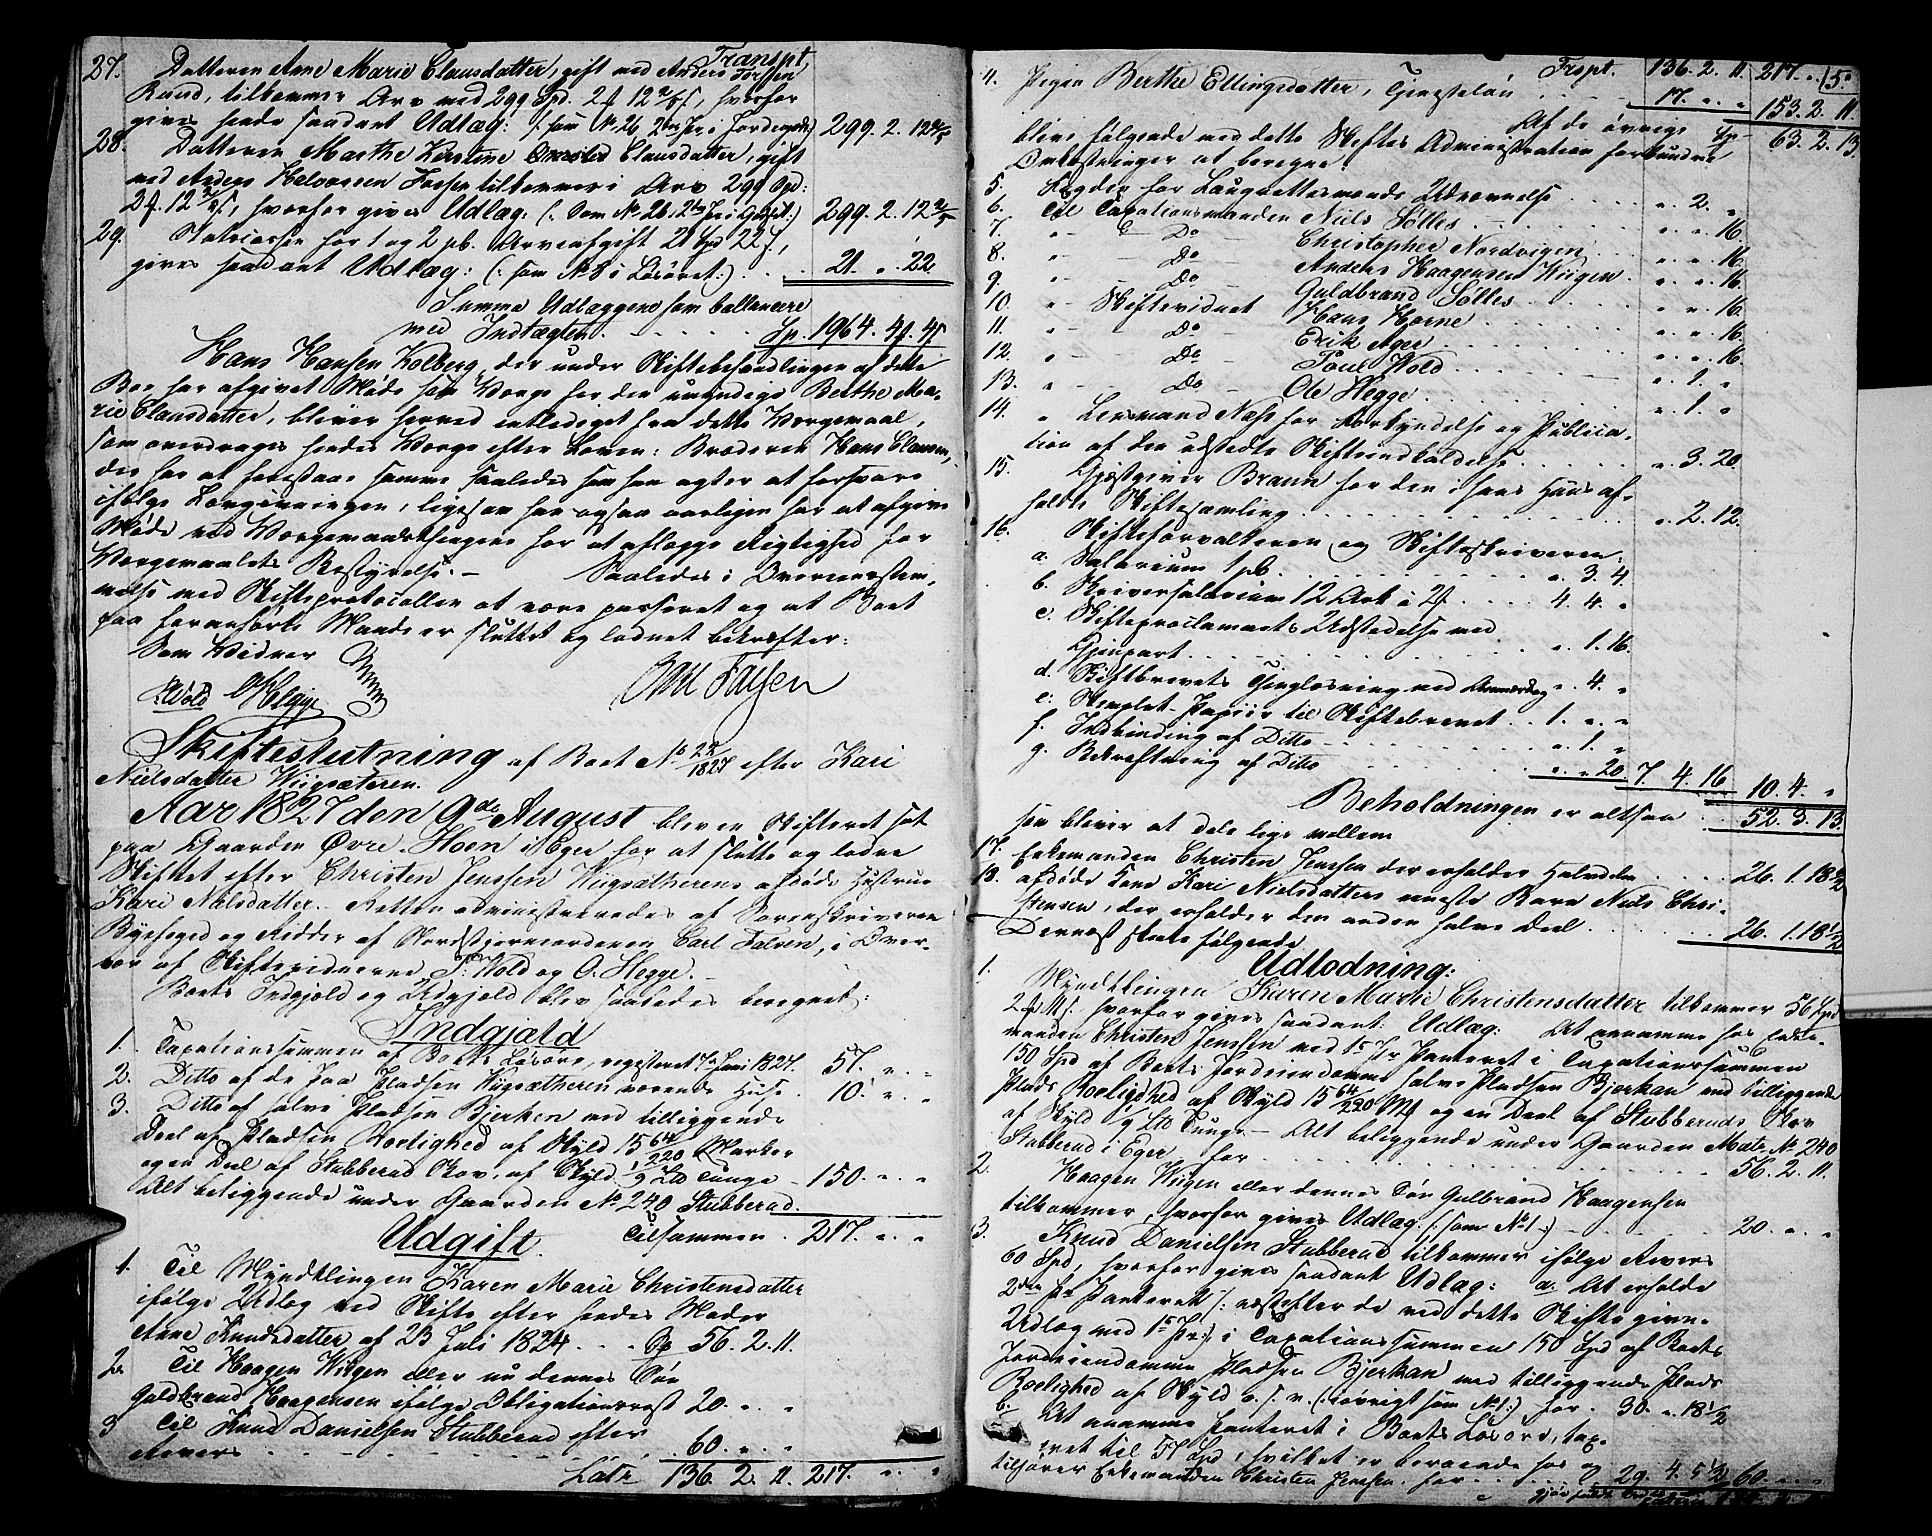 Transpt.
27. Datteren Anne Marie Clausdatter, gift med Anders Torssen
Rund, tilkommer Arv med 299 Spd. 2 12 2/5 s, hvorfor
gives hende saadant Udlæg: (: som No 26 2den Pr i Jordegods:) 299. 2. 12 2/5
28. Datteren Marthe Kirstine Clausdatter, gift
med Anders Halvorsen Fossen tilkommer i Arv 299 Spd:
2 12 2/5 s, hvorfor gives Udlæg: (: Som No 26, 2den Pr i Godset:) 299. 2. 12 2/5
29. Statscassen for 1 og 2 pC. Arveafgift 21 Spd 22 s,
gives saadant Udlæg: (: som No 8 i Løsøret:) . . 21. „ 22
Summa Udlæggene som ballancere
med Indtægten. Sp. 1964. 4. 4
Hans Hansen Kolberg, der under Skiftebehandlingen af dette
Boe har afgivet Møde som Værge for den umyndige Berthe Ma-
rie Clausdatter, bliver herved entlediget fra dette Værgemaal,
som overdrages hendes Værge efter Loven: Broderen Hans Clausen,
der har at forestaae samme saaledes som han agter at forsvare
ifølge Lovgivningen, ligesom han ogsaa aarligen har at afgive
Møde ved Værgemaalsthingene for at aflægge Rigtighed for
Værgemaalets Bestyrelse. — Saaledes i Overeensstem-
melse med Skifteprotocollen at være passeret og at Boet
paa foranførte Maade er sluttet og lodnet bekræfter:
Som Vidner
P. Wold O. Hegge Carl Falsen
Skifteslutning af Boet No 22/1827 efter Kari
Nielsdatter Wiigsæteren.
Aar 1827 den 9de August blev en Skifteret sat
paa Gaarden Øvre Hoen i Eger for at slutte og lodne
Skiftet efter Christen Jenssen Wiigsætherens afdøde Hustrue
Kari Nielsdatter. Retten administreredes af Sorenskriveren
Byefoged og Ridder af Nordstjerneordenen Carl Falsen, i Over-
vær af Skiftevidnerne P. Wold og O. Hegge. —
Boets Indgjeld og Udgjeld blev saaledes beregnet:
Indgjæld
1. Taxationssummen af Boets Løsøre, registeret Juni 1827. 57. „ „
2. Ditto af de paa Pladsen Wiigsætheren værende Huse . 10. „ „
3. Ditto af halve Pladsen Bjerken med tilliggende
Deel af Pladsen Roelighed af Skyld 15 64/220 Marker
og en Deel af Stubberud Skov, af Skyld 1/9 Lto Tunge
Alt beliggende under Gaarden No 240 Stubberud. 150. „ „
Tilsammen . 217. „ „
Udgift.
1. Til Myndtlingen Karen Marie Christensdatter
ifølge Udlæg ved Skifte efter hendes Moder
Anne Knudsdatter af 23 Juli 1824 . . . Sp 56. 2. 11.
2. Til Haagen Wiigen eller nu dennes Søn
Guldbrand Haagensen ifølge Obligationsrest 20. „ „
3 Til Knud Danielsen Stubberud efter
Revers 60. „ „
Late 136. 2. 11. 217. „ „
Trspt. 136. 2. 11. 217. „ 5
4. Pigen Berthe Ellingsdatter, Tjenesteløn . . . 17. „ „ 153. 2. 11.
Af de øvrige Sp 63. 2. 13.
blive følgende med dette Skiftes Administration forbundne
Omkostninger at beregne:
5. Lægden for Laugrettesmænds Udnævnelse . . . . „ 2. „
6. Til Taxationsmanden Niels Sølles „ „ 16.
7. „ — Do — Christopher Nordvigen „ „ 16.
8. „ Do — Anders Haagensen Wiigen . „ „ 16.
9. „ Do — Guldbrand Sølles „ „ 16.
10. „ — Skiftevidnet Hans Horne „ „ 16.
11. „ — Do Erik Ager „ „ 16.
12. „ — Do Poul Wold „ 1. „
13. „ — Do — Ole Hegge „ 1. „
14. „ Lensmand Næss for Forkyndelse og Publica-
tion af den udstedte Skifteindkaldelse „ 3. 20.
15. Gjæstgiver Braun for den i hans Huus af-
holdte Skiftesamling „ 2. 12.
16. Skifteforvalteren og Skifteskriveren.
a. Salarium 1 pC. „ 3. 4.
b. Skriversalarium 12 Ark à 2 . . . . 4. 4. „
c. Skifteproclamaets Udstedelse med
Gjenpart „ 1. 16.
d. Skiftbrevets Thinglæsning med „ 4. „
e. Stemplet Papiir til Skiftebrevet . . 1. „ „
f. Indbinding af Ditto „ 1. „
g. Bekræftning af Ditto „ „ 20. 7. 4. 16 10. 4. „
Beholdningen er altsaa 52. 3. 13.
som bliver at dele lige mellem
17. Enkemanden Christen Jenssen der erholder Halvdelen . . . . 26. 1. 18 1/2
18. afdøde Kone Kari Nielsdatters eneste Barn Niels Chri-
stensen, der erholder den anden halve Deel 26. 1. 18 1/2
Dernæst skete følgende
Udlodning:
1. Myndtlingen Karen Marie Christensdatter tilkommer 56 Spd
2 11 s. hvorfor gives saadant Udlæg: At annamme hos Enke-
manden Christen Jenssen med 1ste Pr Panteret i Taxationssummen
150 Spd af Boets Jordeiendomme halve Pladsen Bjerkan med tilliggende
Plads Roelighed af Skyld 15 64/220 Mk og en Deel af Stubberuds Skov
af Skyld 1/9 Lto Tunge — Alt beliggende under Gaarden Matr. No 240
Stubberud i Eger for 56. 2. 11.
2. Haagen Wiigen eller dennes Søn Gulbrand Haagensen
tilkommer, hvorfor gives Udlæg (: som No 1 :) 20. „ „
3. Knud Danielsen Stubberud tilkommer ifølge Revers
60 Spd, hvorfor gives saadant Udlæg: a. At erholde
2den Pr Panteret (: næstefter de ved dette Skifte givne
Udlæg med 1ste Pr:) i Taxationssummen 150 Spd af Boets
Jordeiendomme Pladsen Bjerkan med tilliggende Plads
Roelighed af Skyld o. s. v. (: iøvrigt som No 1 :) for . 30. „ 18 1/2
b. At annamme Panteret i Boets Løsøre, tax-
eret til 57 Spd, hvilket er beroende hos og
tilhører Enkemanden Christen Jenssen for 29. 4. 5 1/2 60. „ „